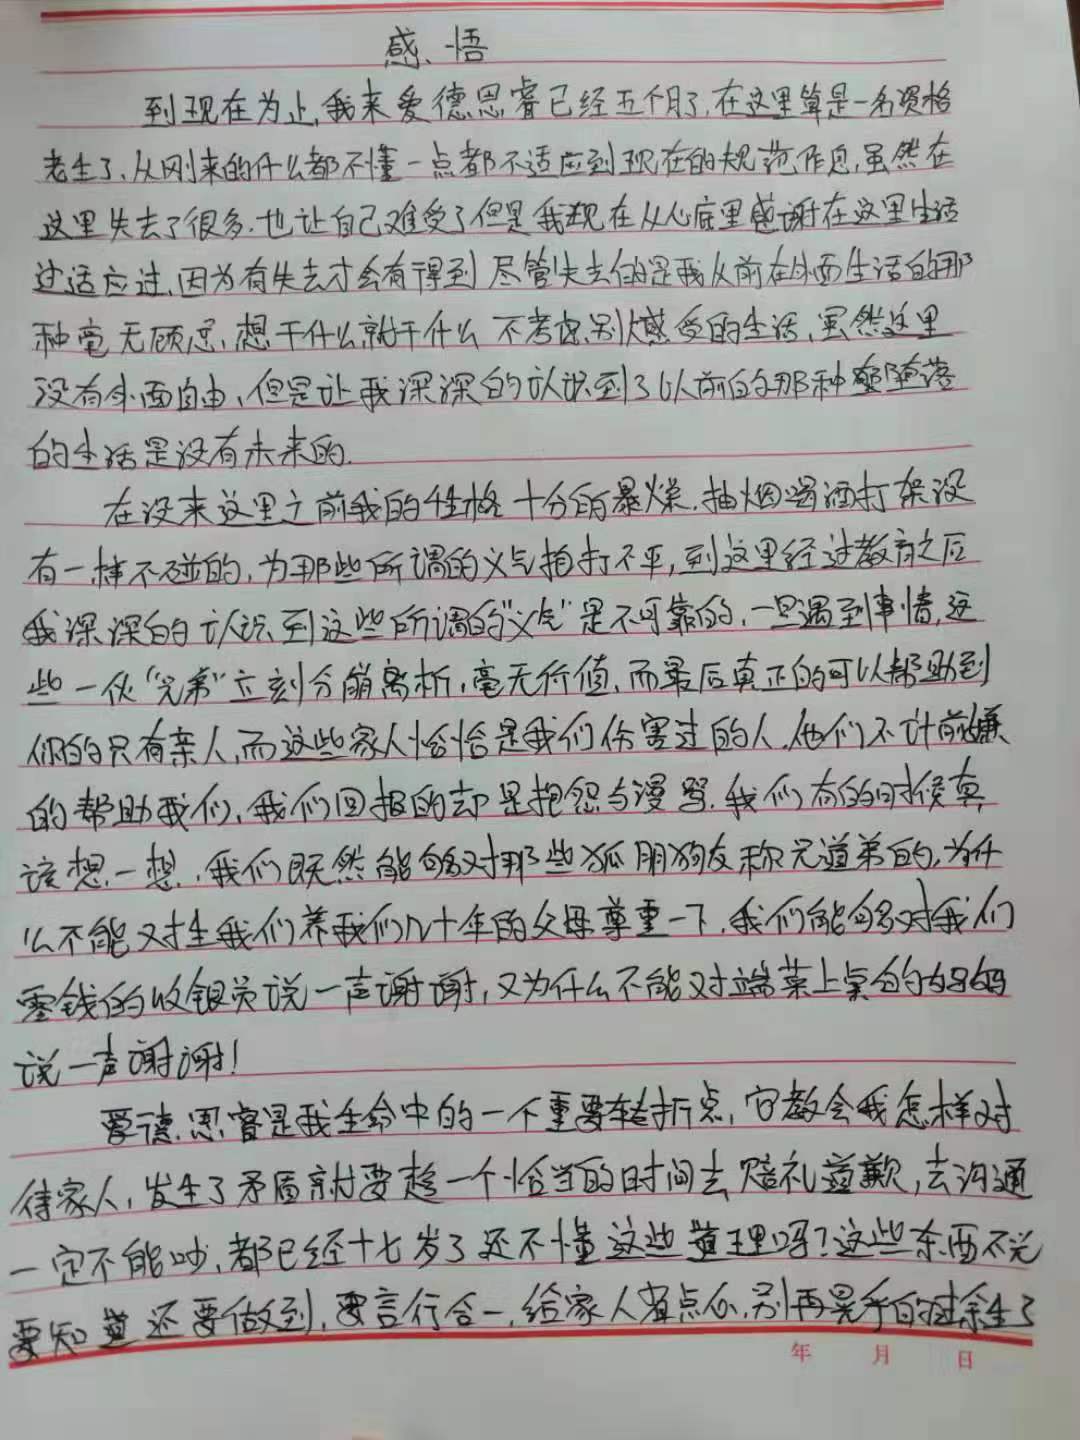 感悟
到现在为止,我来爱德恩睿已经五个月了,在这里算是一名资格
老生了、从刚来的什么都不懂一点都不适应到现在的规范作息,虽然在
这里失去了很多.也让自己难受了但是我现在从心底里感谢在这里生活
过适应过,因为有失去才会有得到尽管失去的是我从前在外面生活的那
种毫无顾忌,想干什么就干什么不考虑别人感受的生活,虽然这里
没有外面自由,但是让我深深的认识到了以前的那种堕落
的生活是没有未来的.
在没来这里之前我的性格十分的暴燥.抽烟喝酒打架没
有一样不碰的,为那些所谓的义气抱打不平,到这里经过教育之后
我深深的认识到这些所谓的"义气"是不可靠的,一旦遇到事情,这
些一伙"兄弟"立刻分崩离析,毫无价值、而最后真正的可以帮助到
你的只有亲人,而这些家人恰恰是我们伤害过的人.他们不计前嫌
的帮助我们,我们回报的却是抱怨与漫骂.我们有的时候真
该想一想.,我们既然能够对那些狐朋狗友称兄道弟的,为什
么不能对生我们养我们几十年的父母尊重一下.我们能够对我们
零钱的收银员说一声谢谢,又为什么不能对端菜上桌的妈妈
说一声谢谢!
爱德.恩睿是我生命中的一个重要转折点,它教会我怎样对
待家人,发生了矛盾就要趁一个恰当的时间去赔礼道歉,去沟通
一定不能吵,都已经十七岁了还不懂这些道理吗?这些东西不光
要知道还要做到,要言行合一,给家人省点心,别再晃手的过余生了
年 月 日